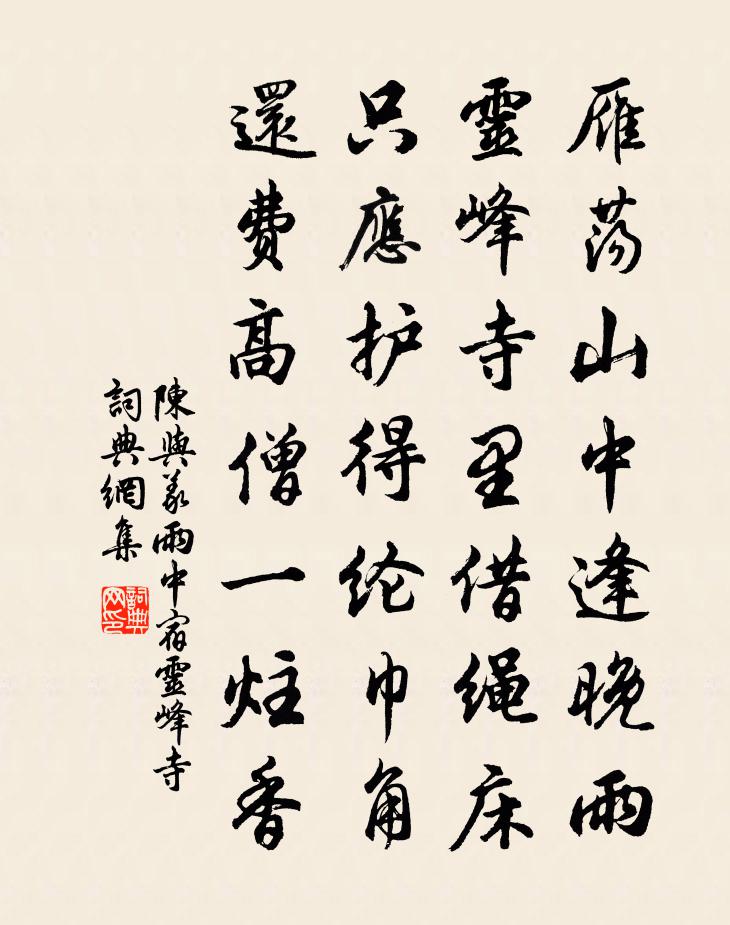 雁荡山中逢晚雨
靈峰寺里借绳床
只應护得纶巾角
還费高僧一炷香
陳與義雨中宿靈峰寺
詞典網集
詞典网印